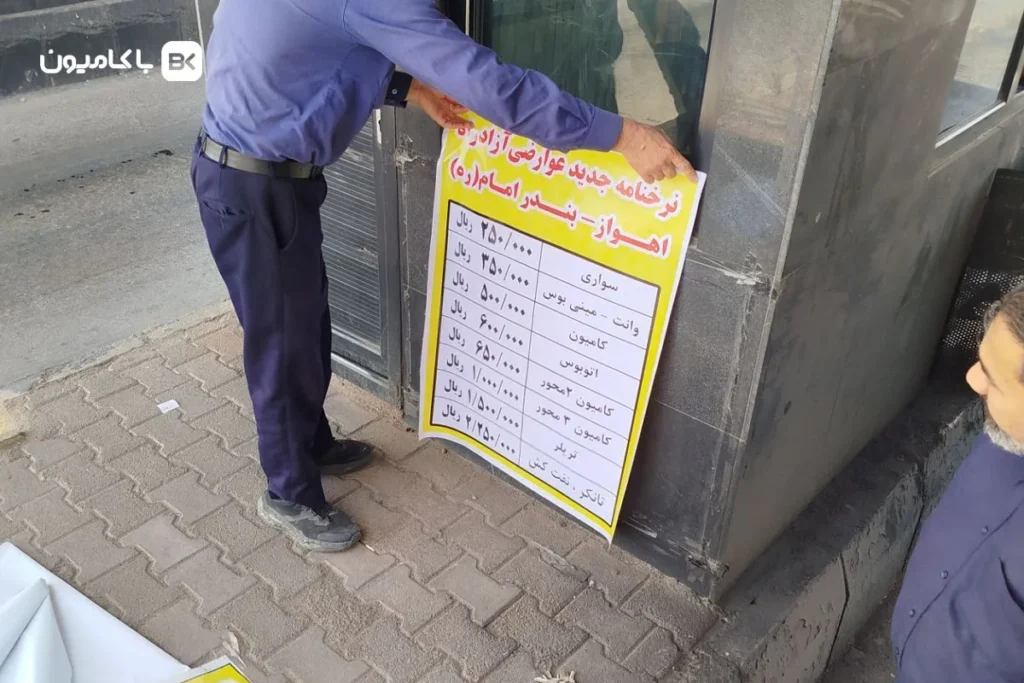 باکامیون BK
نرخنامه جدید عوارضی آزادراه
اهواز - بندر امام(ره)
سواری ۲۵۰/۰۰۰ ریال
وانت - مینی بوس ۳۵۰/۰۰۰ ریال
کامیون ۵۰۰/۰۰۰ ریال
اتوبوس ۶۰۰/۰۰۰ ریال
کامیون ۲محور ۶۵۰/۰۰۰ ریال
کامیون ۳ محور ۱/۰۰۰/۰۰۰ ریال
تریلر ۱/۵۰۰/۰۰۰ ریال
تانکر ، نفت کش ۲/۲۵۰/۰۰۰ ریال